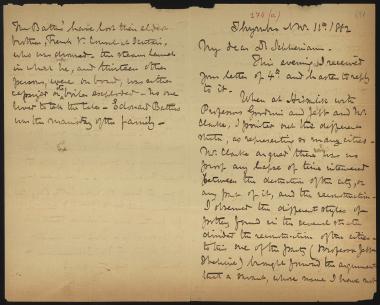 The Battus have lost their elder
brother, Frank V. Consul at
who was drowned - the steam launch
in which he, and thirteen other
persons, were on board, was either
capsized or boiler exploded - no one
lived to tell the tale - Edouard Battus
was the mainstay of the family -
270 (a)
Thymbra Nov. 11th 1882
My dear Dr Schliemann.
This evening I received
your letter of 4th and hasten to reply
to it.
When at Hissarlik with
Professors Goodwin and Jebb and Mr.
Clarke, I pointed out the different
strata, as representing so many cities
Mr Clarke argued there was no
proof any lapse of time intervened
between the destruction of the city, or
any part of it, and the reconstruction -
I observed the different styles of
pottery found in the several strata
the reconstruction of the cities -
to this one of the party (Professor Jebb
I believe) brought forward the argument
that a servant, whose name I have not